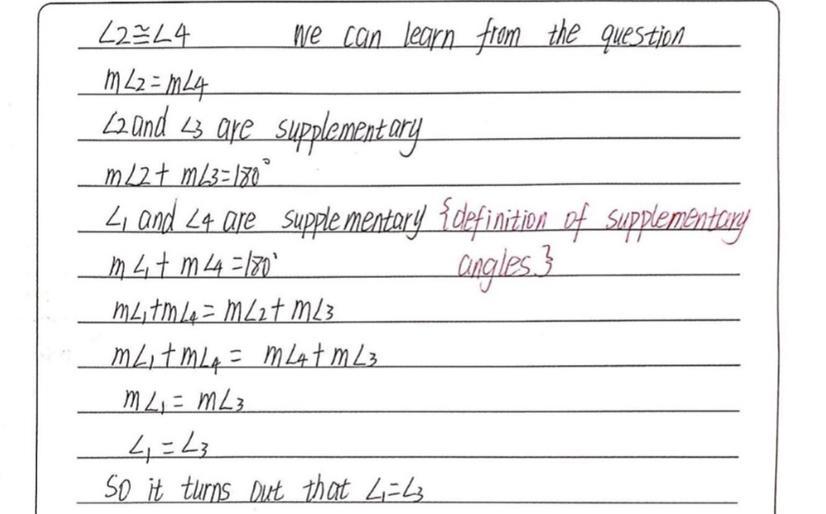 ∠2≅∠4 We can learn from the question
m∠2=m∠4
∠2 and ∠3 are supplementary
m∠2+ m∠3=180°
∠1 and ∠4 are supplementary {definition of supplementary
angles.}
m∠1+ m∠4=180°
m∠1+m∠4= m∠2+ m∠3
m∠1+m∠4= m∠4+m∠3
m∠1= m∠3
∠1=∠3
So it turns out that ∠1=∠3